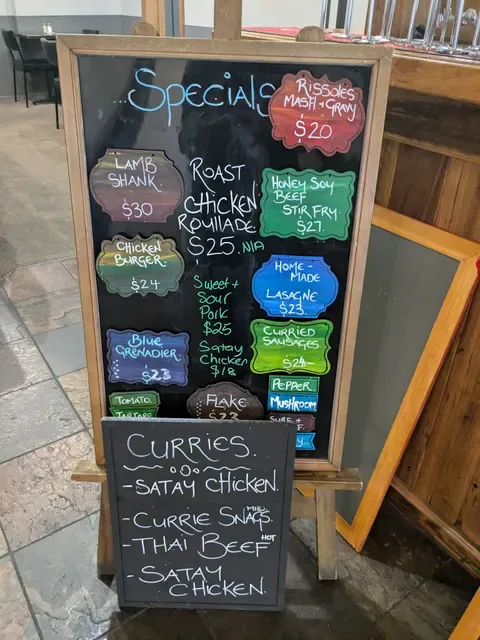 ...Specials
RISSOLES
MASH + GRAVY
$20.
LAMB
SHANK.
$30
ROAST
CHICKEN
ROULLADE
$25. N/A
HONEY SOY
BEEF
STIR FRY.
$27.
CHICKEN
BURGER.
$24
HOME-
MADE
LASAGNE
$23.
Sweet +
Sour
Pork
$25
Satay
Chicken
$18
BLUE
GRENADIER.
$23
CURRIED
SAUSAGES
$24
TOMATO.
TARTARE
FLAKE
$23
PEPPER.
MUSHROOM
SURF +
CURRIES.
- SATAY CHICKEN.
- CURRIE SNAGS. MILD
- THAI BEEF HOT
- SATAY
CHICKEN.